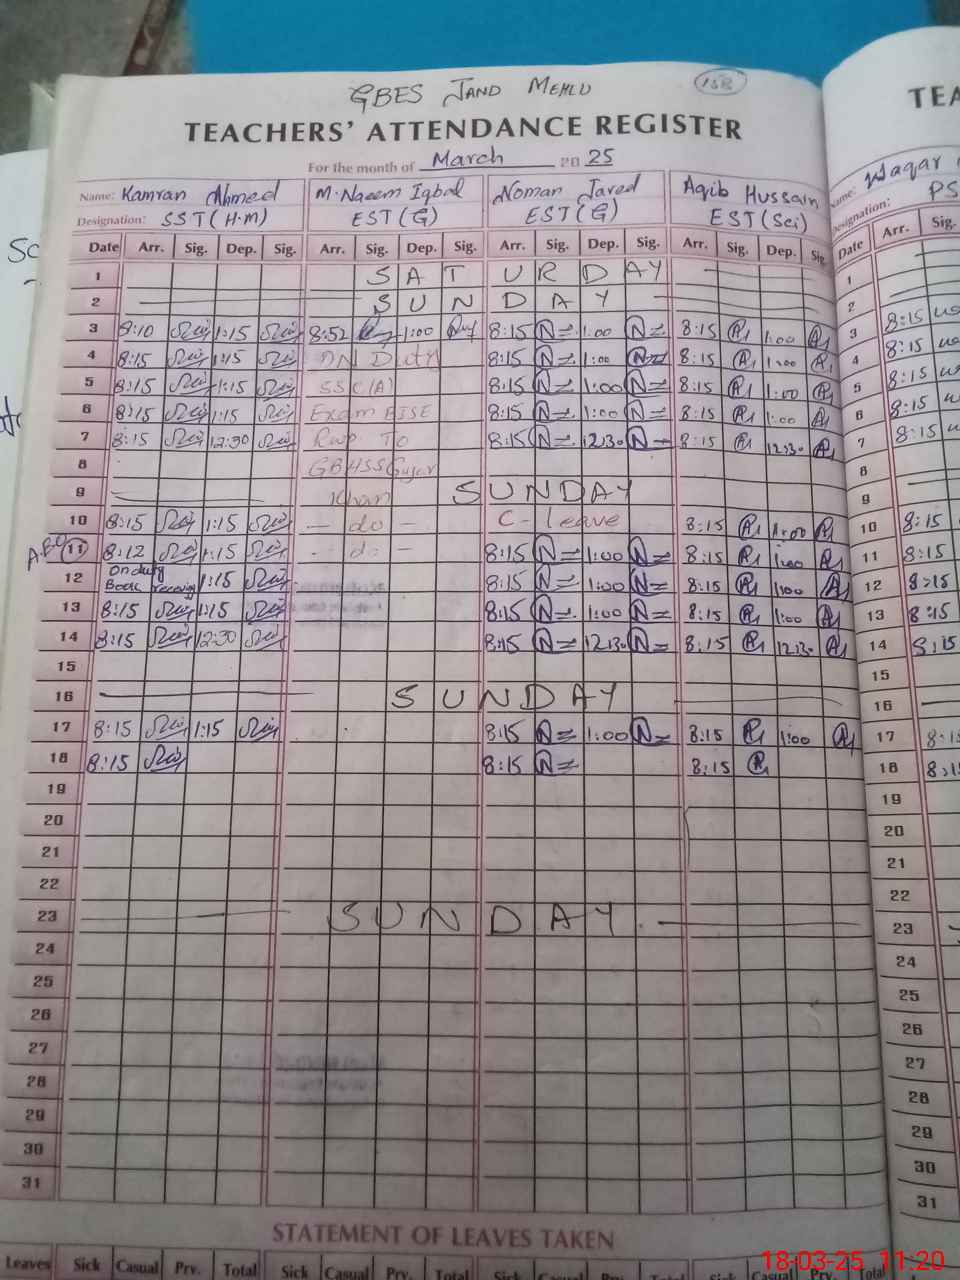 GBES JAND MEHLU
158
TEACHERS' ATTENDANCE REGISTER
For the month of March 2025
Name: Kamran Ahmed M. Naeem Iqbal Noman Javed Aqib Hussain
Designation: SST (H.M) EST (G) EST (G) EST (Sci)
Date Arr. Sig. Dep. Sig. Arr. Sig. Dep. Sig. Arr. Sig. Dep. Sig. Arr. Sig. Dep. Sig.
1 SATURDAY
2 SUNDAY
3 8:10 1:15 8:52 1:00 8:15 N 1:00 N 8:15 1:00
4 8:15 1:15 ON Duty 8:15 N 1:00 N 8:15 1:00
5 8:15 1:15 SSC (A) 8:15 N 1:00 N 8:15 1:00
6 8:15 1:15 Exam BISE 8:15 N 1:00 N 8:15 1:00
7 8:15 12:30 Rwp To 8:15 N 12:30 N 8:15 12:30
8 GBHSS Gujar
9 Khan SUNDAY
10 8:15 1:15 - do - C-leave 8:15 1:00
11 8:12 1:15 - do - 8:15 N 1:00 N 8:15 1:00
12 On duty Book 1:15 8:15 N 1:00 N 8:15 1:00
13 8:15 1:15 8:15 N 1:00 N 8:15 1:00
14 8:15 12:30 8:15 N 12:30 N 8:15 12:30
15
16 SUNDAY
17 8:15 1:15 8:15 N 1:00 N 8:15 1:00
18 8:15 8:15 N 8:15
19
20
21
22
23 SUNDAY
24
25
26
27
28
29
30
31
STATEMENT OF LEAVES TAKEN
Leaves Sick Casual Prv. Total Sick Casual Prv. Total Sick Casual Prv. Total Sick Casual Prv. Total
TEA
Name: Waqar
Designation: PS
Date Arr. Sig.
1
2
3 8:15
4 8:15
5 8:15
6 8:15
7 8:15
8
9
10 8:15
11 8:15
12 8:15
13 8:15
14 8:15
15
16
17 8:15
18
19
20
21
22
23
24
25
26
27
28
29
30
31
18-03-25 11:20